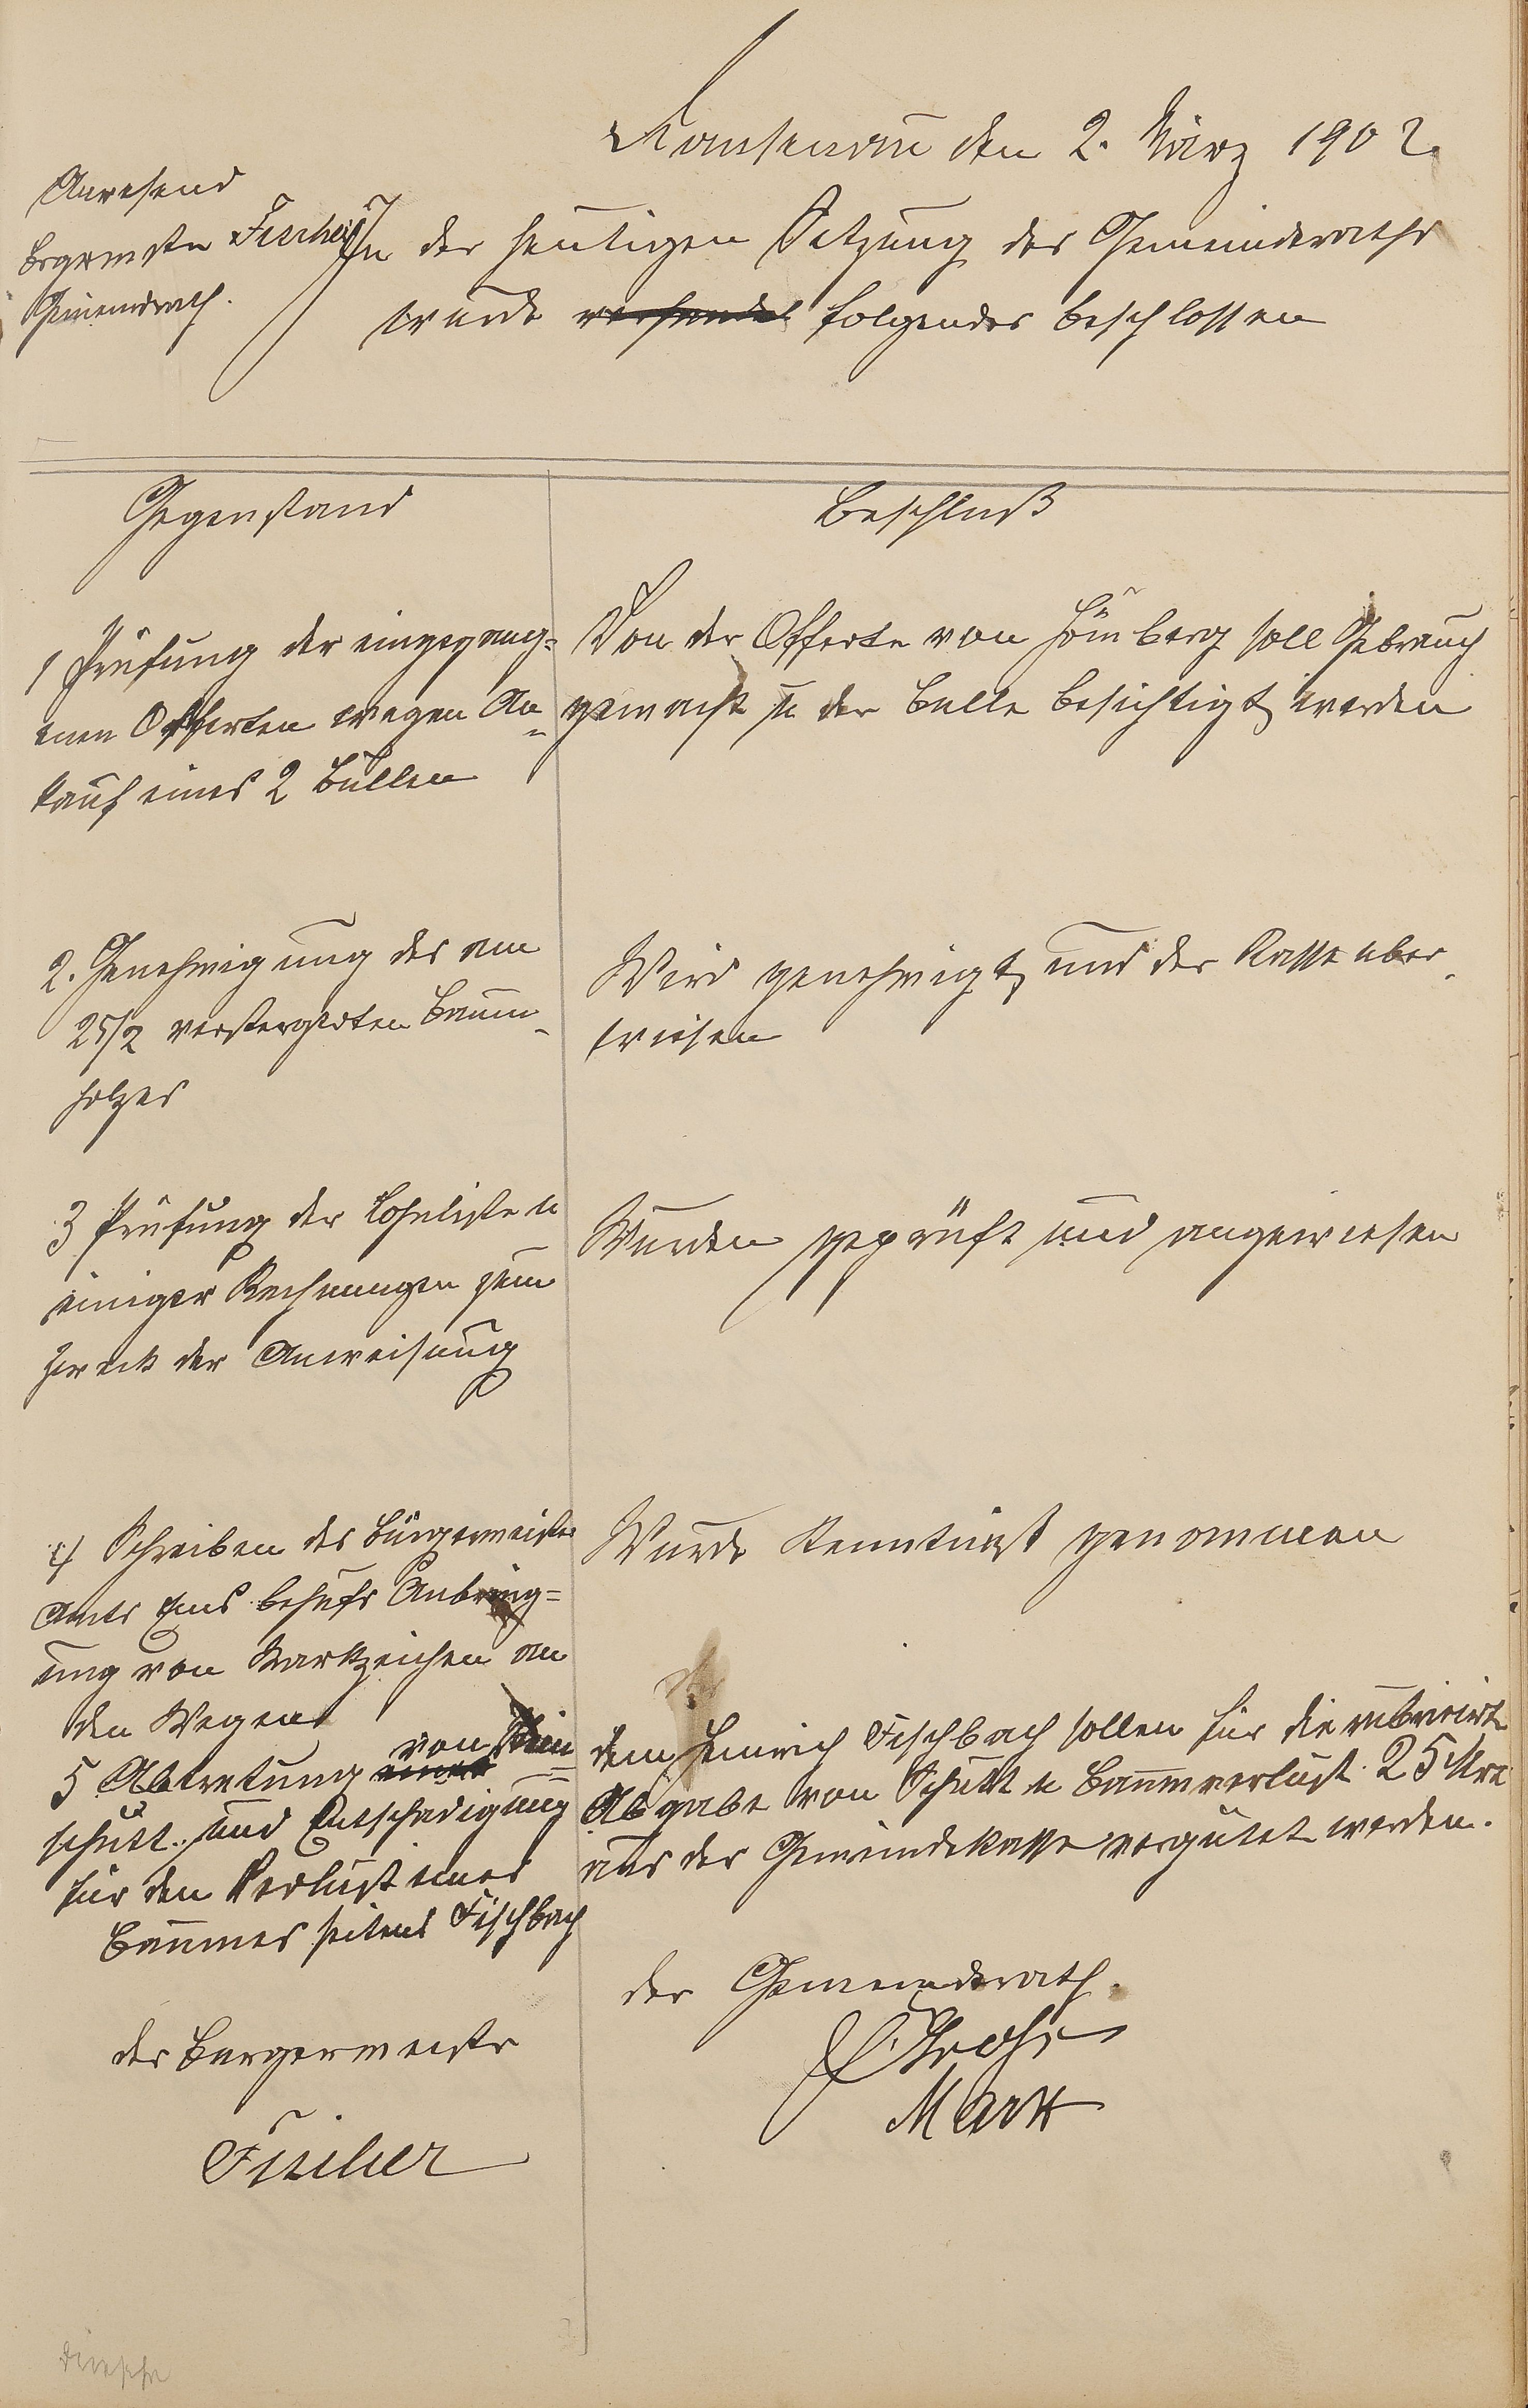 den 2. März 1902.
Anwesend
Brgrmstr Fischer
Gemeindrath.
In der heutigen Sitzung des Gemeinderaths
wurde folgendes beschlossen
Gegenstand
Beschluß
1 Prüfung der eingegang=
enen Offerten wegen An=
kauf eines 2 Bullen
Von der Offerte von Hömberg soll Gebrauch
gemacht u der Bulle besichtigt werden
2. Genehmigung des am
25/2 versteigerten Baum-
holzes
Wird genehmigt und der Kasse über-
wiesen
3 Prüfung der Lohnliste u
einiger Rechnungen zum
Zweck der Anweisung
Wurden geprüft und angewiesen
4 Schreiben des Bürgermeister
Amts Ems behufs Anbring=
ung von Markzeichen an
den Wegen
Wurde Kenntniß genommen
5 Abtretung von Stein=
schutt und Entschädigung
für den Verlust eines
Baumes seitens Fischbach
dem Heinrich Fischbach sollen für die rubricirte
Abgabe von Schutt u Baumverlust 25 Mrk
aus der Gemeindekasse vergütet werden.
der Bürgermeister
Fischer
der Gemeinderath.
Marx